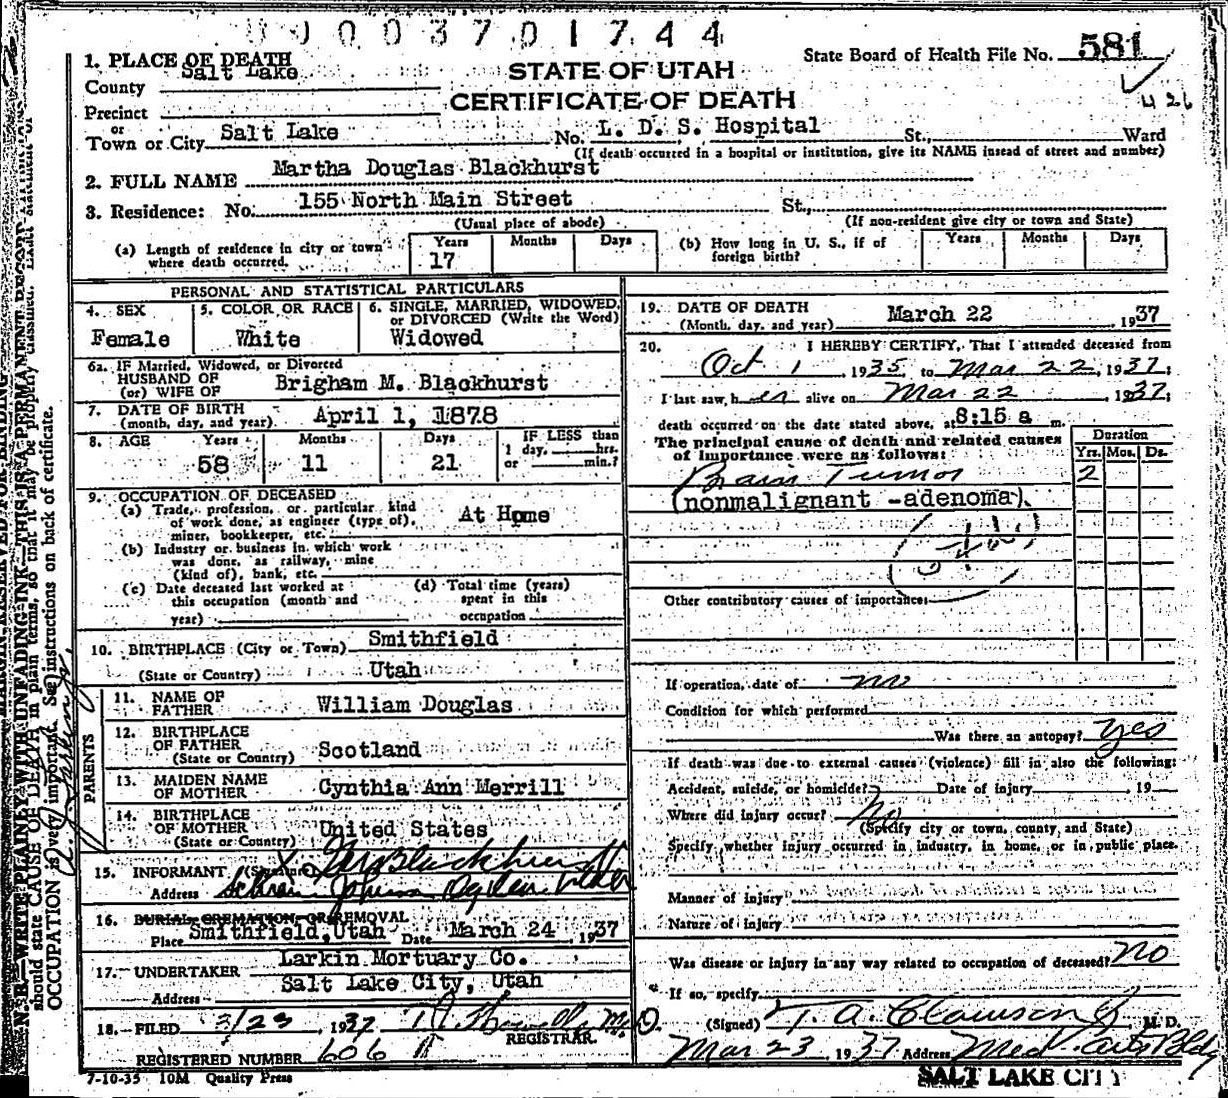 0 0 0 3 7 0 1 7 4 4
State Board of Health File No. 581
4 26
1. PLACE OF DEATH
STATE OF UTAH
County Salt Lake
CERTIFICATE OF DEATH
Precinct
or
Town or City Salt Lake No. L. D. S. Hospital St., Ward
(If death occurred in a hospital or institution, give its NAME insead of street and number)
2. FULL NAME Martha Douglas Blackhurst
3. Residence: No. 155 North Main Street St.,
(Usual place of abode) (If non-resident give city or town and State)
(a) Length of residence in city or town where death occurred. Years 17 Months Days
(b) How long in U. S., if of foreign birth? Years Months Days
PERSONAL AND STATISTICAL PARTICULARS
4. SEX Female
5. COLOR OR RACE White
6. SINGLE, MARRIED, WIDOWED, or DIVORCED (Write the Word) Widowed
6a. IF Married, Widowed, or Divorced
HUSBAND OF
(or) WIFE OF Brigham M. Blackhurst
7. DATE OF BIRTH
(month, day, and year) April 1, 1878
8. AGE Years 58 Months 11 Days 21 IF LESS than 1 day, hrs. or min.?
9. OCCUPATION OF DECEASED
(a) Trade, profession, or particular kind
of work done, as engineer (type of),
miner, bookkeeper, etc. At Home
(b) Industry or business in which work
was done, as railway, mine
(kind of), bank, etc.
(c) Date deceased last worked at
this occupation (month and
year)
(d) Total time (years)
spent in this
occupation
10. BIRTHPLACE (City or Town) Smithfield
(State or Country) Utah
PARENTS
11. NAME OF FATHER William Douglas
12. BIRTHPLACE OF FATHER
(State or Country) Scotland
13. MAIDEN NAME OF MOTHER Cynthia Ann Merrill
14. BIRTHPLACE OF MOTHER
(State or Country) United States
15. INFORMANT (Signature) Blackhurst
Address Ogden Utah
16. BURIAL, CREMATION, OR REMOVAL
Place Smithfield, Utah Date March 24, 1937
17. UNDERTAKER Larkin Mortuary Co.
Address Salt Lake City, Utah
18. FILED 3/23, 1937 M.D.
REGISTRAR.
REGISTERED NUMBER 606
7-10-35 10M Quality Press
19. DATE OF DEATH
(Month, day, and year) March 22, 1937
20. I HEREBY CERTIFY, That I attended deceased from
Oct 1 1935, to Mar 22, 1937;
I last saw her alive on Mar 22 1937;
death occurred on the date stated above, at 8:15 a m.
The principal cause of death and related causes
of importance were as follows:
Duration
Yrs. Mos. Ds.
Brain Tumor 2
(nonmalignant -adenoma)
Other contributory causes of importance:
If operation, date of no
Condition for which performed
Was there an autopsy? yes
If death was due to external causes (violence) fill in also the following:
Accident, suicide, or homicide? Date of injury 19
Where did injury occur? No
(Specify city or town, county, and State)
Specify whether injury occurred in industry, in home, or in public place.
Manner of injury
Nature of injury
Was disease or injury in any way related to occupation of deceased? No
If so, specify
(Signed) T. A. Clawson Jr, M. D.
Mar 23, 1937 Address Med Arts Bldg
SALT LAKE CITY
N. B.—WRITE PLAINLY WITH UNFADING INK—THIS IS A PERMANENT RECORD
should state CAUSE OF DEATH in plain terms, so that it may be properly classified.
OCCUPATION is very important. See instructions on back of certificate.